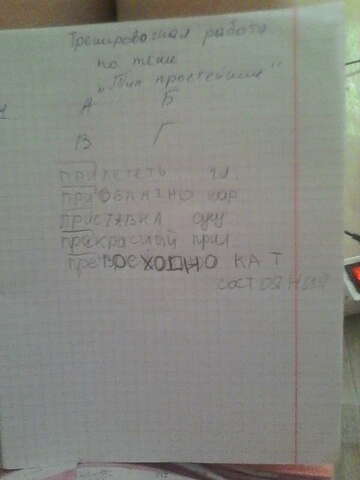 Тренировочная работа
по теме
„Тип простейшие"
А Б
В Г
ПРИЛЕТЕТЬ гл.
нар
ПРИСТАВКА сущ
ПРЕКРАСНЫЙ прил
ПРЕВОСХОДНО КАТ
СОСТОЯНИЯ